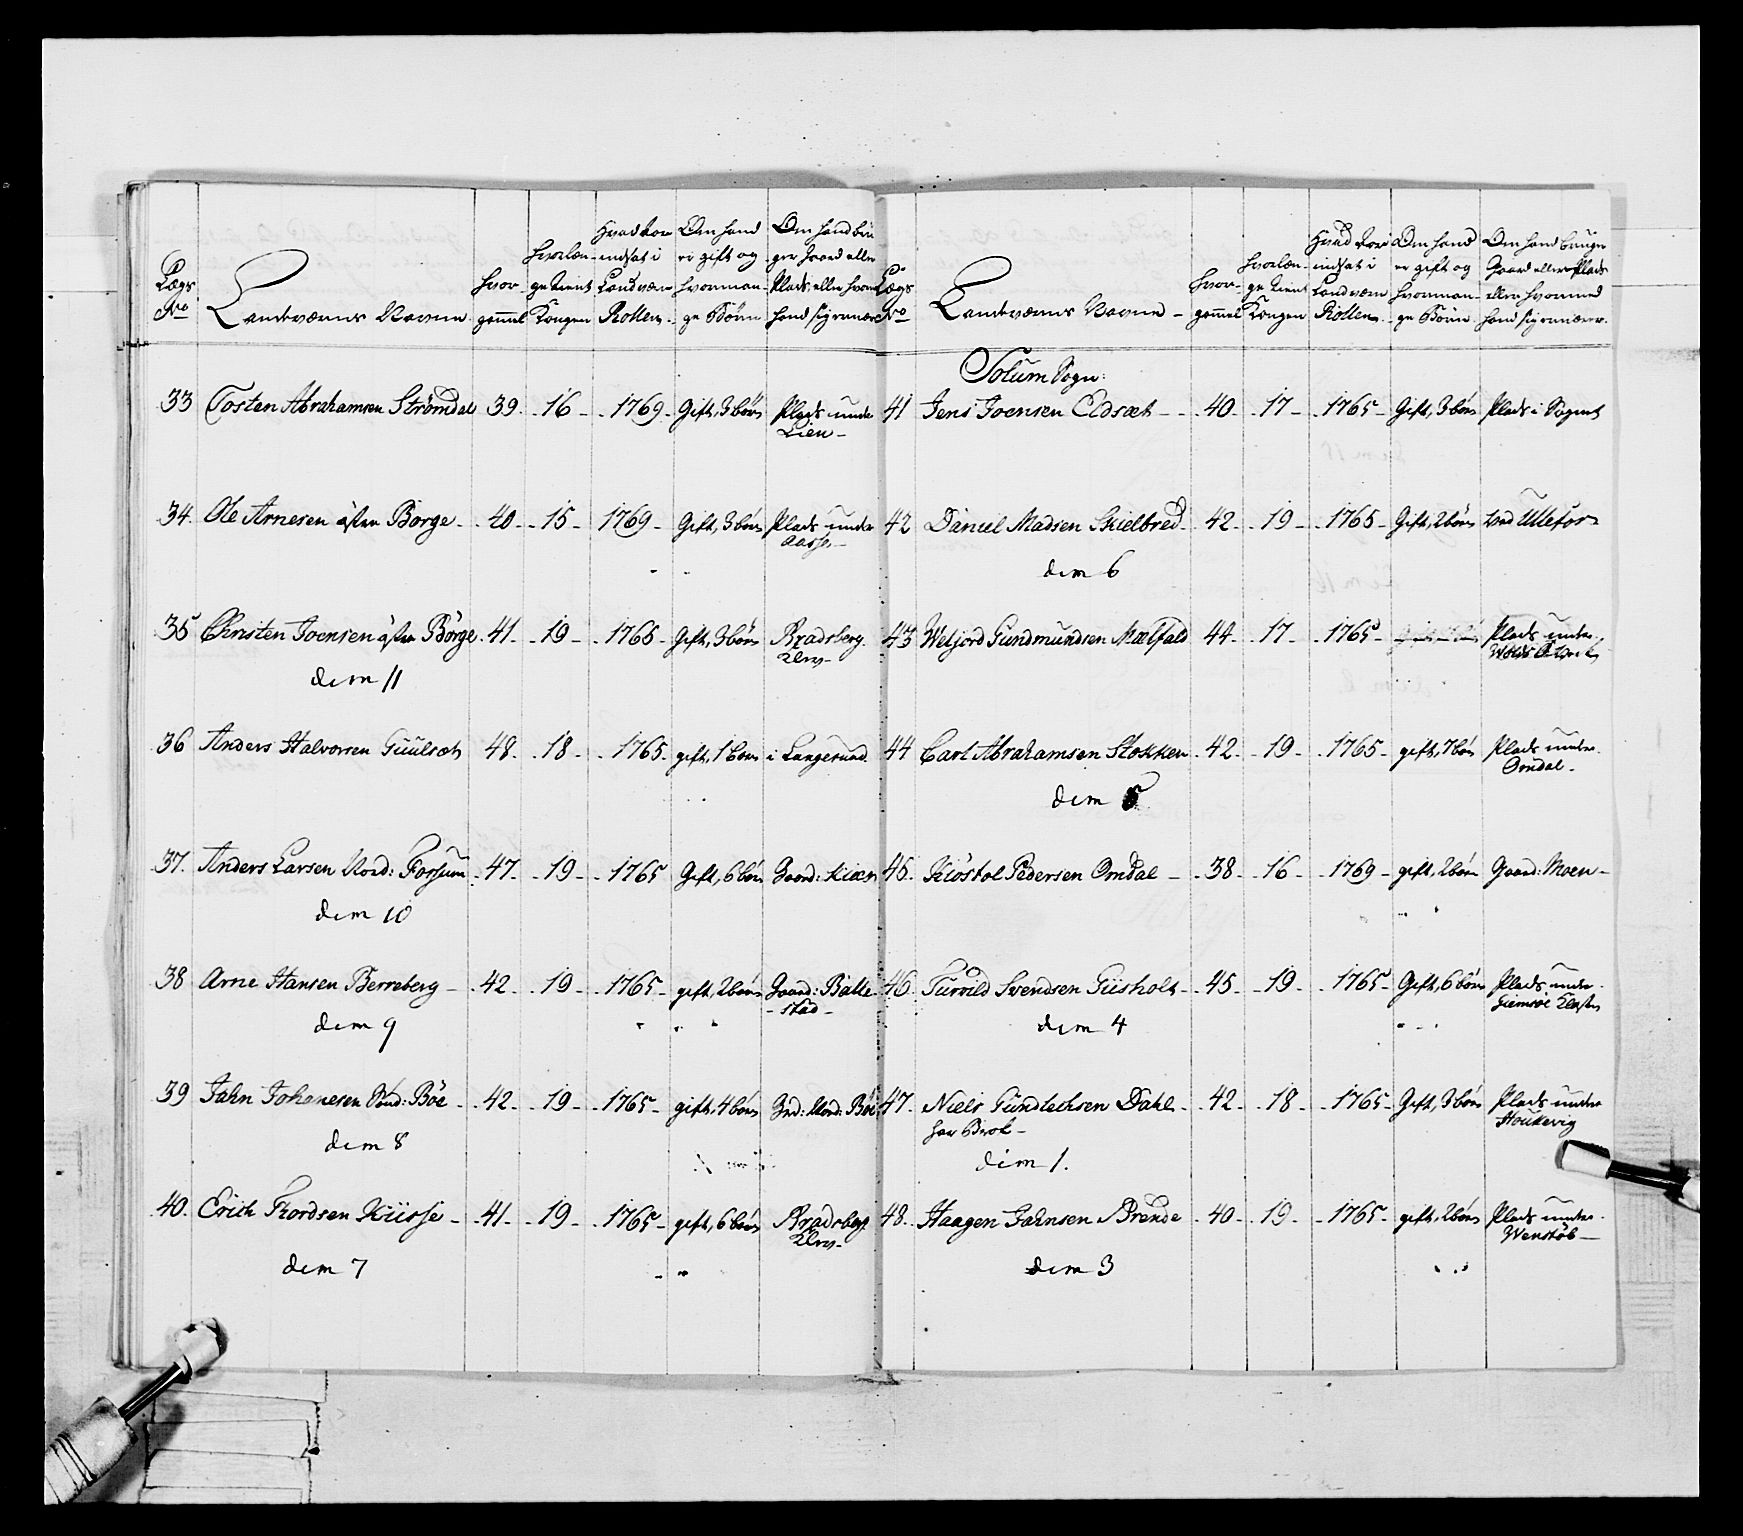 Lægs No
Landeværns Navne
hvor gammel
hvorlænge tient Kongen
Hvad tor indsat i Landværn Rollen
Om hand er gift og hvormange Börn
Om hand bruger Gaard eller Plads, eller hvormed hand sig ernærer
33 Tosten Abrahamsen Strömdal 39. 16 - 1769. Gift, 3 börn Plads under
Lien -
34. Ole Arnesen Borge - 40 - 15 - 1769 - Gift, 3 börn Plads under
35 Christen Joensen Börge. 41. 19 - 1765 - Gift, 3 börn Bradsberg
Klev -
dem 11
36 Anders Halvorsen Guulset 48. 18 - 1765. gift, 1 barn i Langesund.
37. Anders Larsen Nord: Forsum 47. 19 - 1765 Gift, 6 börn Gaard:
dem 10
38 Arne Hansen Berreberg - 42 - 19 - 1765 - gift, 2 börn Gaard: Balle
- stad -
dem 9
39 Jahn Johanesen Nord: Böe - 42 - 19 - 1765 - gift, 4 börn Grd: Nord: Böe
dem 8
40. Erich Thordsen Kiisse - 41 - 19 - 1765 - gift, 6 börn Bradsberg
Klev -
dem 7
Lægs No
Landeværns Navne -
hvor gammel
hvorlænge tient Kongen
Hvad tor indsat i Landværn Rollen
Om hand er gift og hvormange Börn
Om hand bruger Gaard eller Plads eller hvormed hand sig ernærer.
Solum Sogn:
41 Jens Joensen Eldsæt - 40 - 17 - 1765 - Gift, 3 börn Plads i Sognet
42 Daniel Madsen Skielbred - 42 - 19 - 1765 - Gift, 2 börn ved Ullefos
dem 6
43 Wetjord Gundmundsen Mælfald 44 - 17 - 1765 - Plads under
44 Carl Abrahamsen Stokken 42 - 19 - 1765 - gift, 7 börn Plads under
Omdal -
dem 5
45. Kiöstol Pedersen Omdal - 38 - 16 - 1769 - gift, 2 börn Gaard: Moen -
46. Turvild Svendsen Giisholt - 45 - 19 - 1765 - Gift, 6 börn Plads under
Giemsöe Kloster
dem 4
47. Niels Gundlechsen Dahl - 42 - 18 - 1765 - Gift, 3 börn Plads under
har Brok - Houkevig
dem 1.
48. Haagen Jahnsen Brende 40 - 19 - 1765 - gift, 2 börn Plads under
Wenstöb -
dem 3